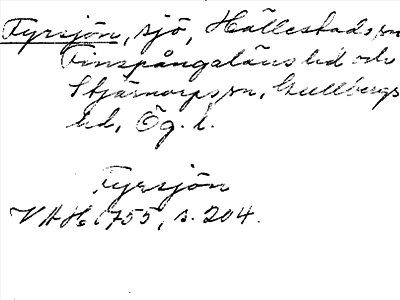 Fyrsjön, sjö, Hällestads sn
Finspångaläns hd och
Stjärnorps sn, Gullbergs
hd, Ög. l.
Fyrsjön
VAH 1755, s. 204.